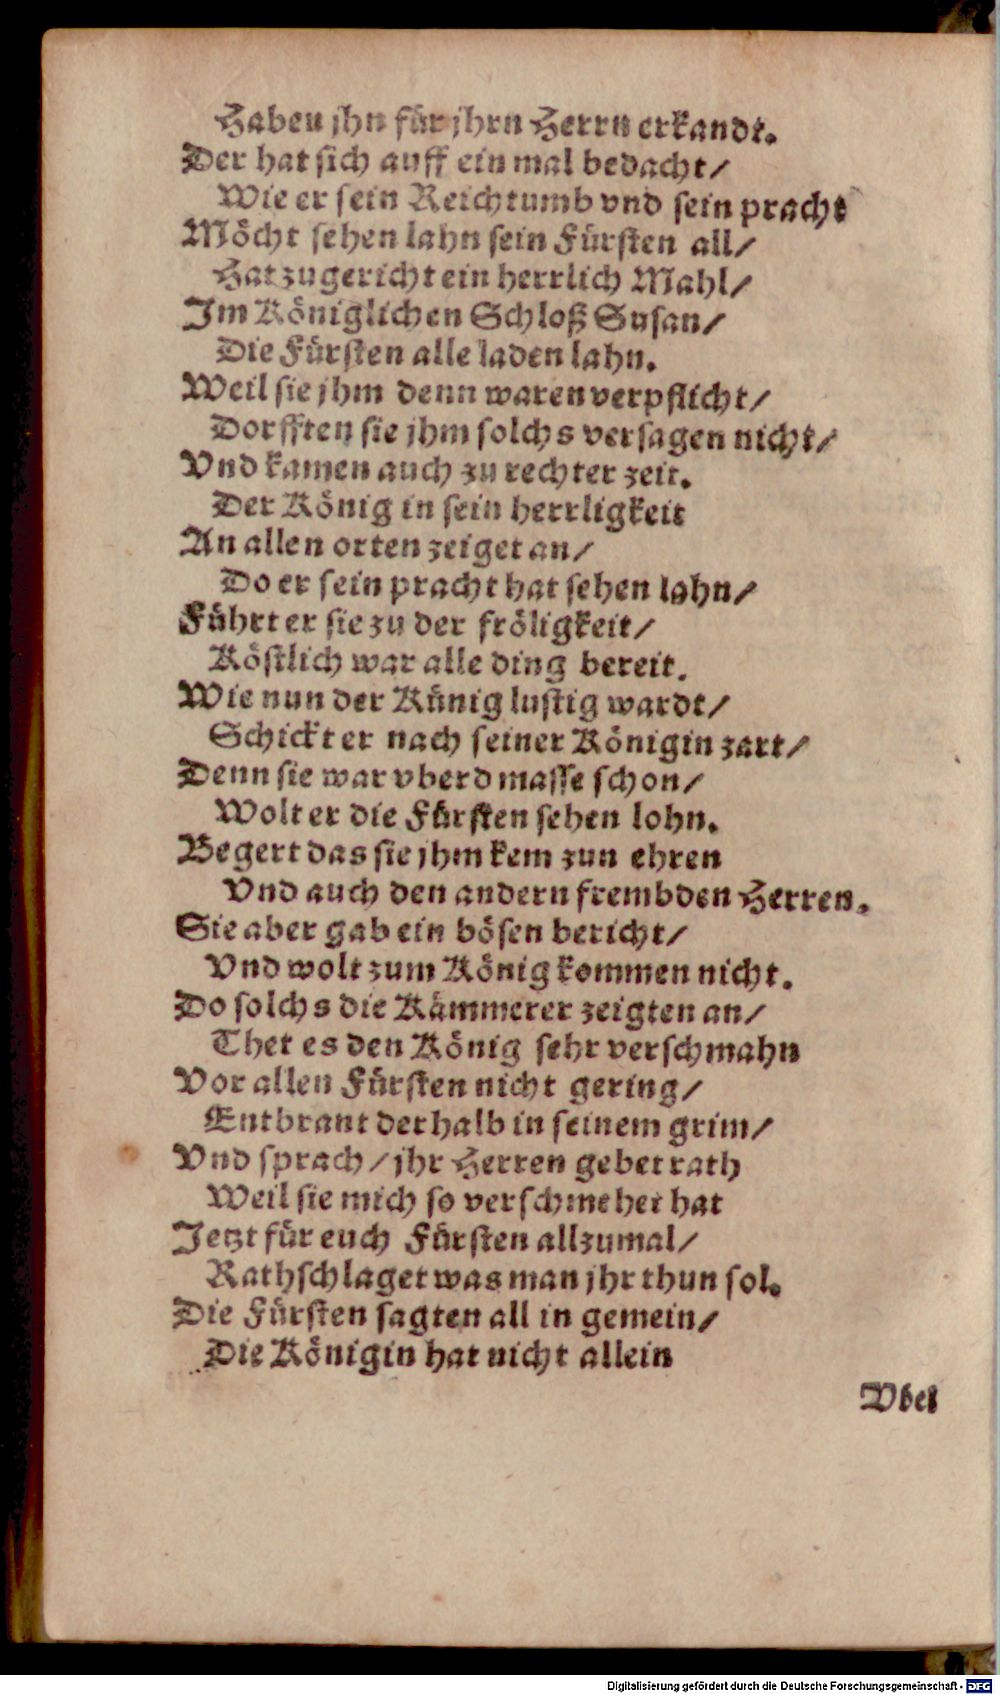 Haben jhn für jhrn Herrn erkandt.
Der hat sich auff ein mal bedacht/
Wie er sein Reichtumb vnd sein pracht
Möcht sehen lahn sein Fürsten all/
Hat zugericht ein herrlich Mahl/
Im Königlichen Schloß Susan/
Die Fürsten alle laden lahn.
Weil sie jhm denn waren verpflicht/
Dorfften sie jhm solchs versagen nicht/
Vnd kamen auch zu rechter zeit.
Der König in sein herrligkeit
An allen orten zeiget an/
Do er sein pracht hat sehen lahn/
Führt er sie zu der fröligkeit/
Köstlich war alle ding bereit.
Wie nun der Künig lustig wardt/
Schickt er nach seiner Königin zart/
Denn sie war vberd masse schon/
Wolt er die Fürsten sehen lohn.
Begert das sie jhm kem zun ehren
Vnd auch den andern frembden Herren.
Sie aber gab ein bösen bericht/
Vnd wolt zum König kommen nicht.
Do solchs die Kämmerer zeigten an/
Thet es den König sehr verschmahn
Vor allen Fürsten nicht gering/
Entbrant derhalb in seinem grim/
Vnd sprach/ jhr Herren gebet rath
Weil sie mich so verschmehet hat
Jetzt für euch Fürsten allzumal/
Rathschlaget was man jhr thun sol.
Die Fürsten sagten all in gemein/
Die Königin hat nicht allein
Vbel
Digitalisierung gefördert durch die Deutsche Forschungsgemeinschaft - DFG